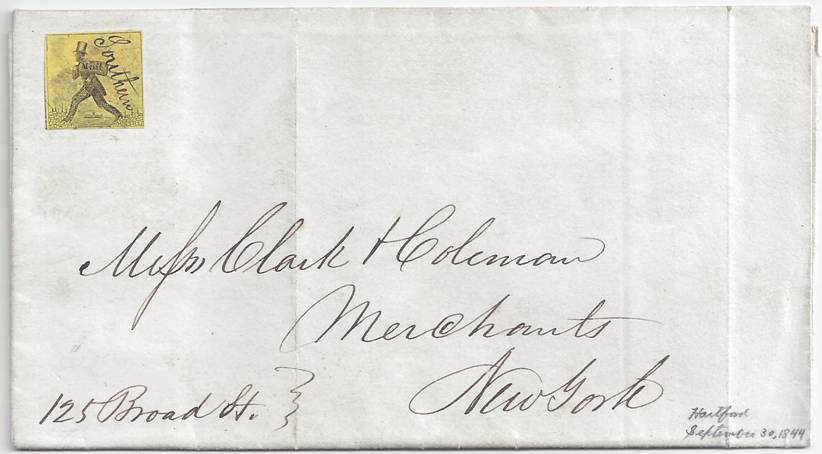 Southern
Mail
Messrs Clark & Coleman
Merchants
New York
125 Broad St.
Hartford
September 30, 1844